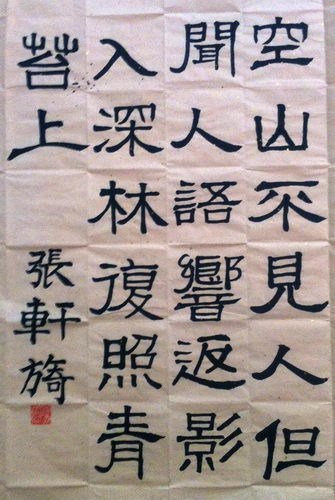 空山不見人但
聞人語響返影
入深林復照青
苔上
張軒旖